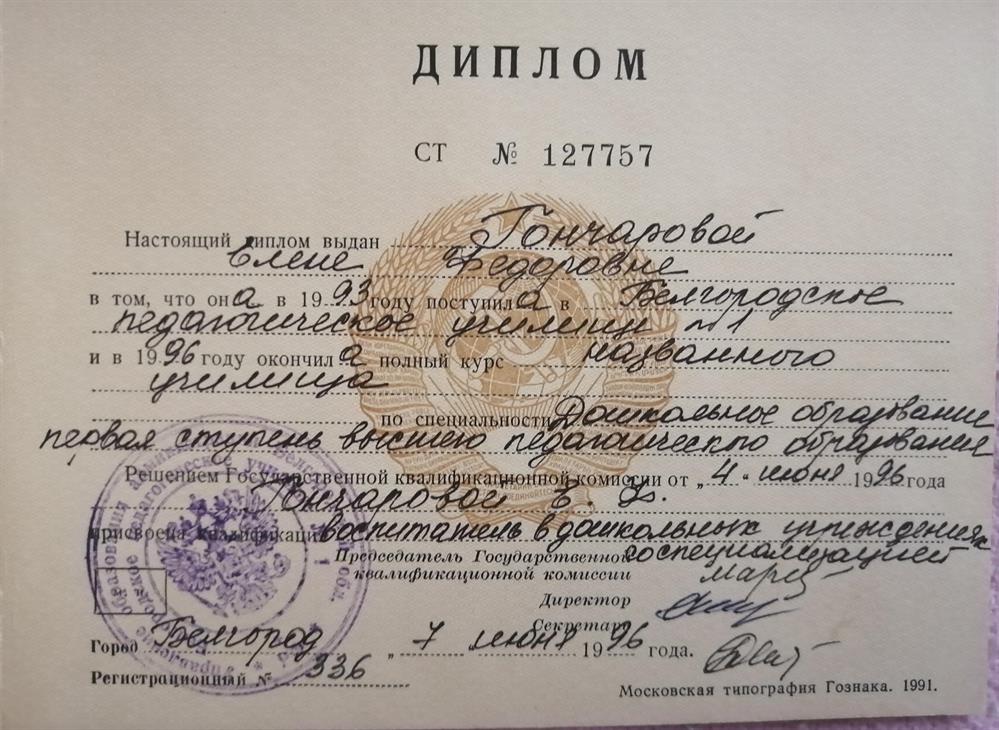 ДИПЛОМ
СТ № 127757
Настоящий диплом выдан Гончаровой
Елене Федоровне
в том, что она в 1993 году поступила в Белгородское
педагогическое училище №1
и в 1996 году окончила полный курс названного
училища
по специальности Дошкольное образование
первая ступень высшего педагогического образования
Решением Государственной квалификационной комиссии от „4“ июня 1996 года
Гончаровой Е. Ф.
присвоена квалификация воспитатель в дошкольных учреждениях
со специализацией
Председатель Государственной
квалификационной комиссии
Директор
Секретарь
Город Белгород „7 июня 1996 года.
Регистрационный № 336
Московская типография Гознака. 1991.